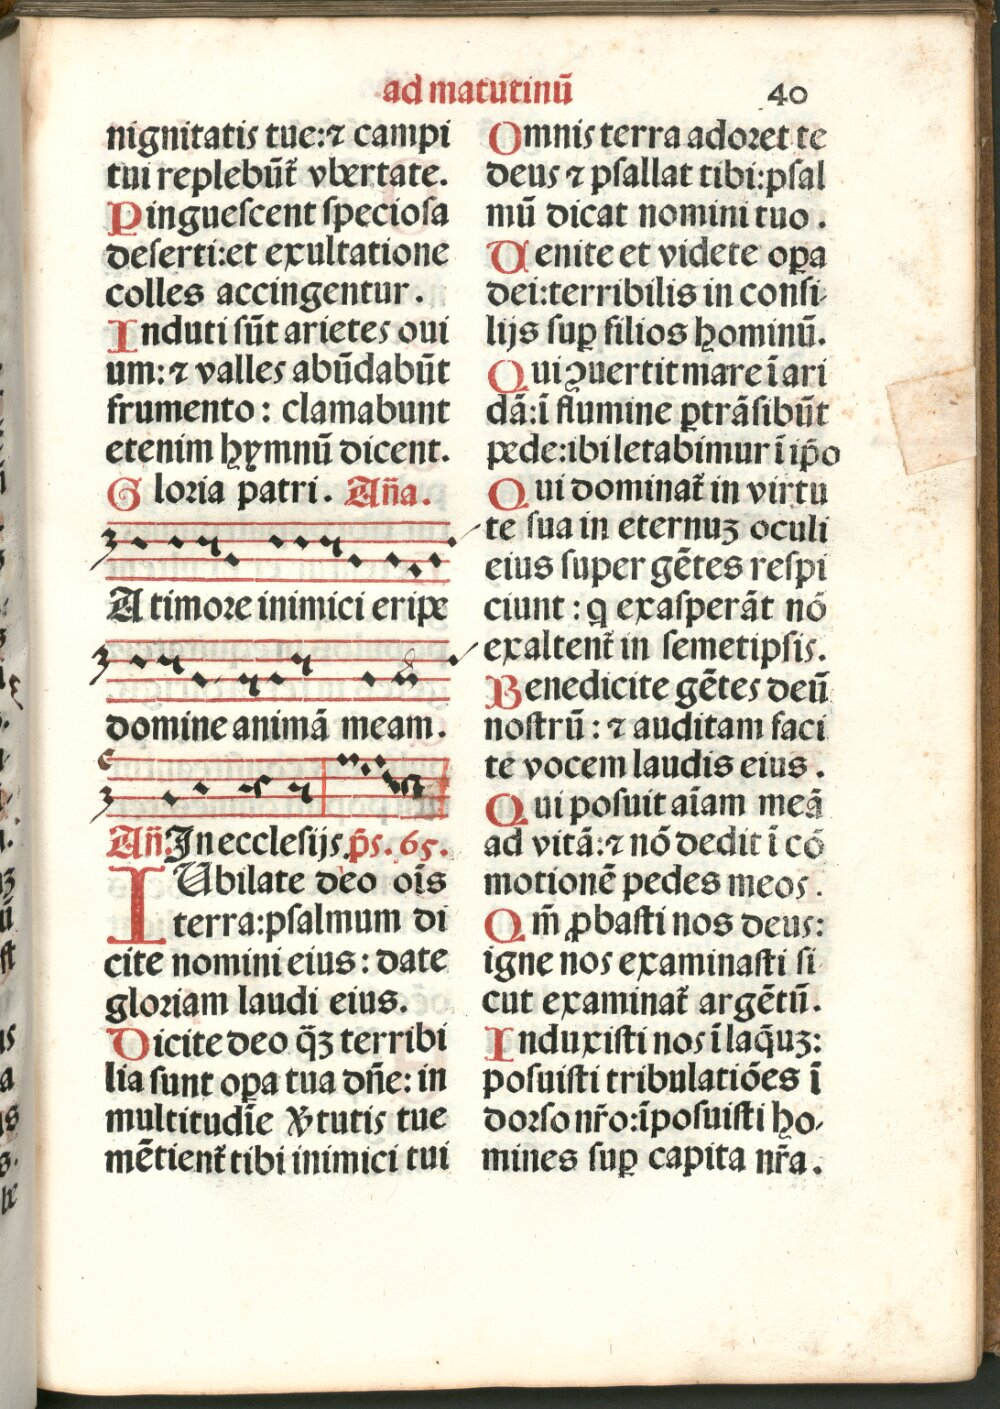 ad matutinū 40
nignitatis tue:⁊ campi
tui replebūt᷑ vbertate.
Pinguescent speciosa
deserti:et exultatione
colles accingentur.
Induti sūt arietes oui
um:⁊ valles abūdabūt
frumento: clamabunt
etenim hymnū dicent.
Gloria patri. Aña.
A timore inimici eripe
domine animā meam.
Añ. In ecclesijs. p̄s. 65.
IUbilate deo oīs
terra:psalmum di
cite nomini eius: date
gloriam laudi eius.
Dicite deo q̄ꝫ terribi
lia sunt oꝑa tua dñe: in
multitudīe v̓tutis tue
mētient᷑ tibi inimici tui
Omnis terra adoret te
deus ⁊ psallat tibi:psal
mū dicat nomini tuo.
Uenite et videte oꝑa
dei:terribilis in consi-
lijs suꝑ filios hominū.
Qui ꝯuertit mare ī ari
dā:ī flumine ꝑtrāsibūt
pede:ibi letabimur ī ip̄o
Qui dominat᷑ in virtu
te sua in eternuꝫ oculi
eius super gētes respi
ciunt: q exasperāt nō
exaltent᷑ in semetipsis.
Benedicite gētes deū
nostrū: ⁊ auditam faci
te vocem laudis eius.
Qui posuit aīam meā
ad vitā:⁊ nō dedit ī cō
motionē pedes meos.
Qm̄ ꝓbasti nos deus:
igne nos examinasti si
cut examinat᷑ argētū.
Induxisti nos ī laq̄uꝫ:
posuisti tribulatiōes ī
dorso nr̄o:īposuisti ho-
mines suꝑ capita nr̄a.